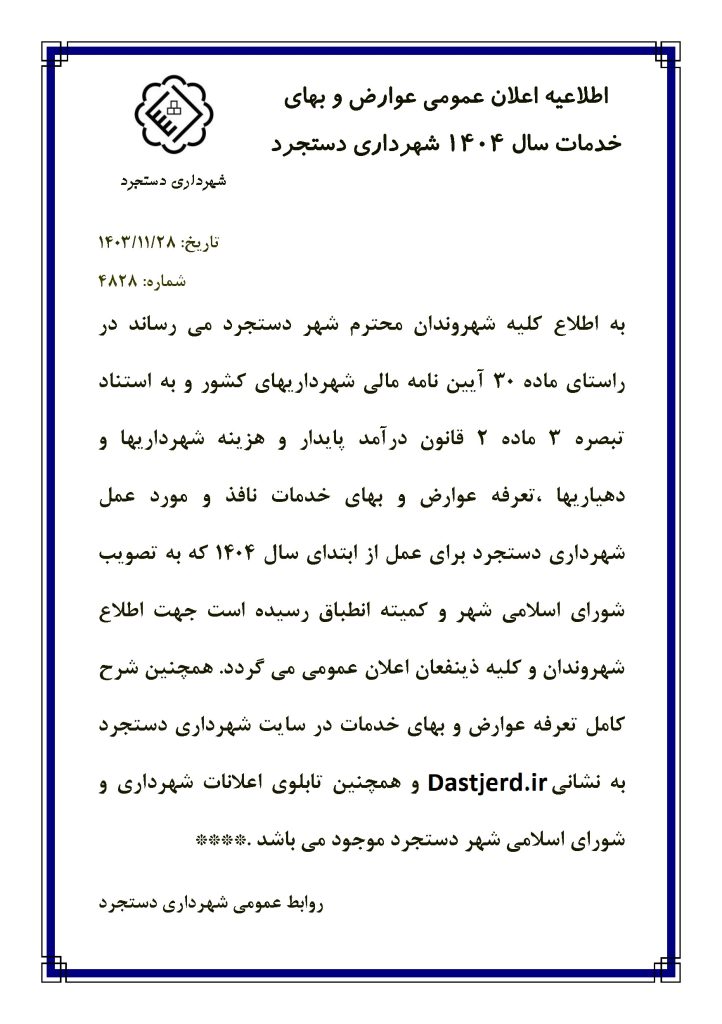 اطلاعیه اعلان عمومی عوارض و بهای
خدمات سال ۱۴۰۴ شهرداری دستجرد
شهرداری دستجرد
تاریخ: ۱۴۰۳/۱۱/۲۸
شماره: ۴۸۲۸
به اطلاع کلیه شهروندان محترم شهر دستجرد می رساند در
راستای ماده ۳۰ آیین نامه مالی شهرداریهای کشور و به استناد
تبصره ۳ ماده ۲ قانون درآمد پایدار و هزینه شهرداریها و
دهیاریها ،تعرفه عوارض و بهای خدمات نافذ و مورد عمل
شهرداری دستجرد برای عمل از ابتدای سال ۱۴۰۴ که به تصویب
شورای اسلامی شهر و کمیته انطباق رسیده است جهت اطلاع
شهروندان و کلیه ذینفعان اعلان عمومی می گردد. همچنین شرح
کامل تعرفه عوارض و بهای خدمات در سایت شهرداری دستجرد
به نشانی Dastjerd.ir و همچنین تابلوی اعلانات شهرداری و
شورای اسلامی شهر دستجرد موجود می باشد .****
روابط عمومی شهرداری دستجرد